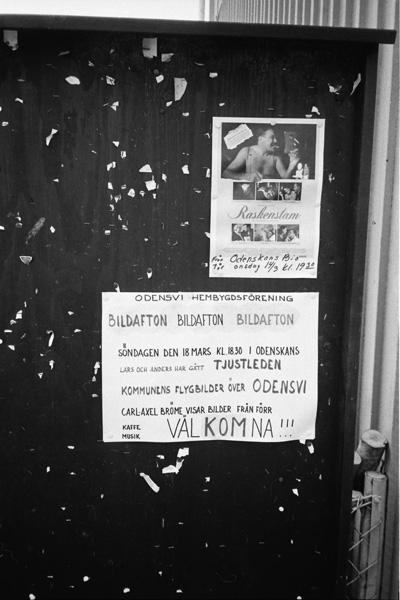 Raskenstam
Från 7år Odenskans Bio
onsdag 14/3 kl. 19 30
ODENSVI HEMBYGDSFÖRENING
BILDAFTON BILDAFTON BILDAFTON
SÖNDAGEN DEN 18 MARS KL. 18.30 I ODENSKANS
LARS OCH ANDERS HAR GÅTT TJUSTLEDEN
KOMMUNENS FLYGBILDER ÖVER ODENSVI
CARL-AXEL BRÖME VISAR BILDER FRÅN FÖRR
KAFFE
MUSIK
VÄLKOMNA!!!